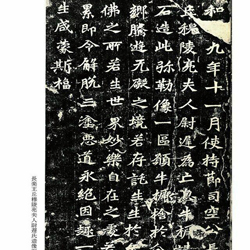 和九年十一月使持節司空公長
丘穆陵亮夫人尉遲為亡息牛橛
石造此彌勒像一區願牛橛捨於
鄉騰遊無礙之境若存託生生於
佛之所若生世界妙樂自在之
累即令解脫三塗惡道永絕因趣一
生咸蒙斯福
長樂王丘穆陵亮夫人尉遲氏造像